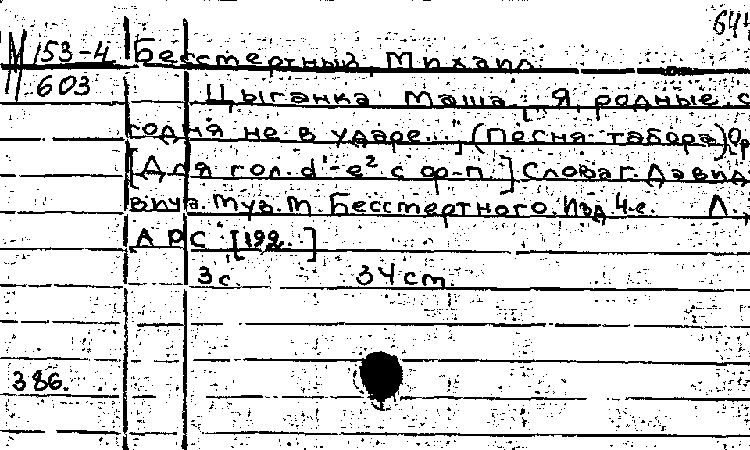 644
М 153-4 Бессмертный, Михаил.
603 Цыганка Маша. „Я, родные, с
годня не в ударе...“ (Песня табора) Ор
[Для гол. d¹-e² с ф-п.] Слова Г. Давид
вича. Муз. М. Бессмертного. Изд. 4-е. Л.,
АРС [192.]
3 с. 34 см.
386.